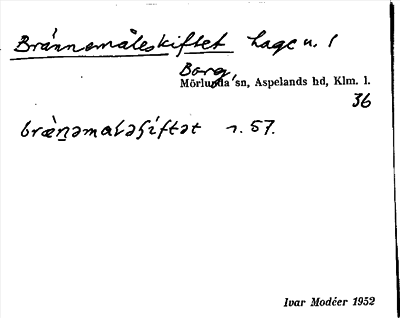 Brännemåleskiftet hage u. l
Borg,
Mörlunda sn, Aspelands hd, Klm. l.
36
n. 57.
Ivar Modéer 1952